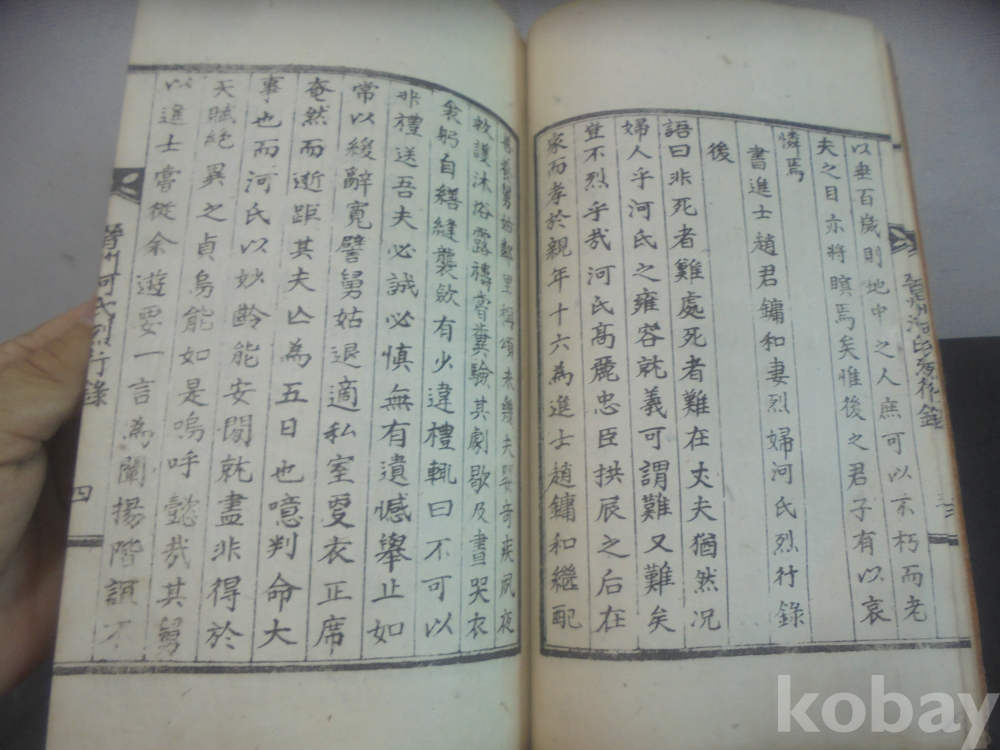 以垂百歲則地中之人庶可以不朽而老
夫之目亦將瞑焉矣惟後之君子有以哀
憐焉
書進士趙君鏞和妻烈婦河氏烈行錄
後
語曰非死者難處死者難在丈夫猶然况
婦人乎河氏之雍容就義可謂難又難矣
豈不烈乎哉河氏高麗忠臣拱辰之后在
家而孝於親年十六為進士趙鏞和繼配
舅姑鄰里稱頌未幾夫嬰奇疾夙夜
救護沐浴露禱嘗糞驗其劇歇及晝哭衣
衾躬自繕縫襲斂有少違禮輒曰不可以
非禮送吾夫必誠必慎無有遺憾舉止如
常以緩辭寬譬舅姑退適私室更衣正席
奄然而逝距其夫亡為五日也噫判命大
事也而河氏以妙齡能安閒就盡非得於
天賦絕異之貞烏能如是嗚呼懿哉其舅
以進士嘗從余遊要一言為闡揚階顧不
晉州河氏烈行錄
四
kobay